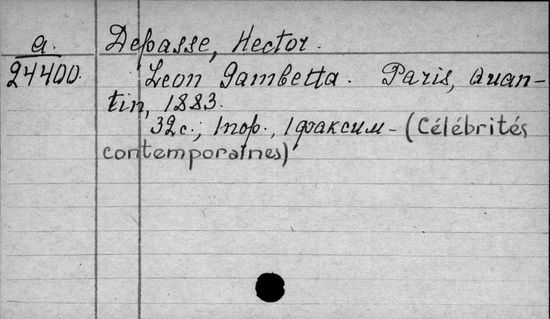 a. Depasse, Hector.
24400. Leon Gambetta. Paris, Quan-
tin, 1883.
32с., 1пор., 1факсим - (Célébrités
contemporaines)